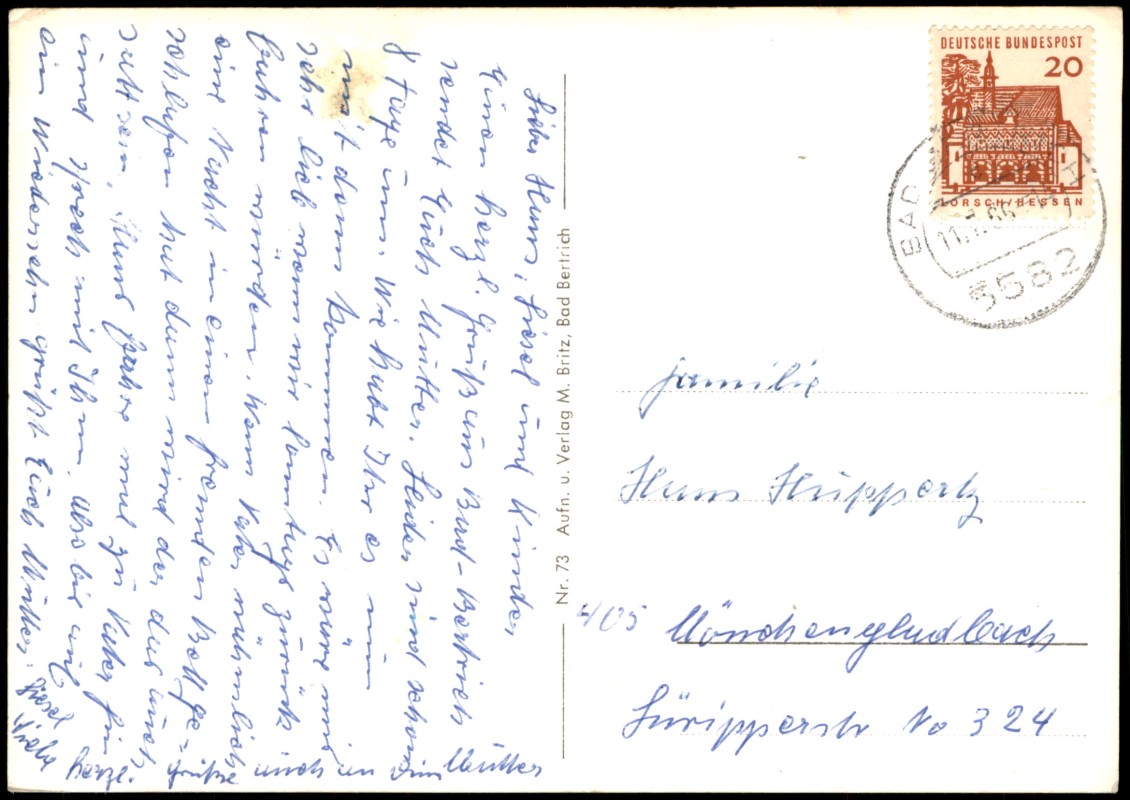 Liebe Hans, Liesel und Kinder
Einen herzl. Gruß aus Bad-Bertrich
sendet Euch Mutter. Leider sind schon
8 Tage um. Wie habt Ihr es nun
mit dem kommen. Es wäre uns
sehr lieb wenn wir Sonntags zurück
fahren würden. Wenn Vater nämlich
eine Nacht in einem fremden Bett ge=
schlafen hat dann wird der das auch
satt sein, Hans fahre mal zu Vater hin
und sprech mit Ihm, also bis auf
ein Wiedersehn grüßt Euch Mutter.
Liebe Liesel
herzl. Grüße auch an Deine Mutter
Nr. 73 Aufn. u. Verlag M. Britz, Bad Bertrich
DEUTSCHE BUNDESPOST
20
LORSCH/HESSEN
BAD
5582
Familie
Hans Hüppertz
405 Mönchengladbach
Süripperstr No 324